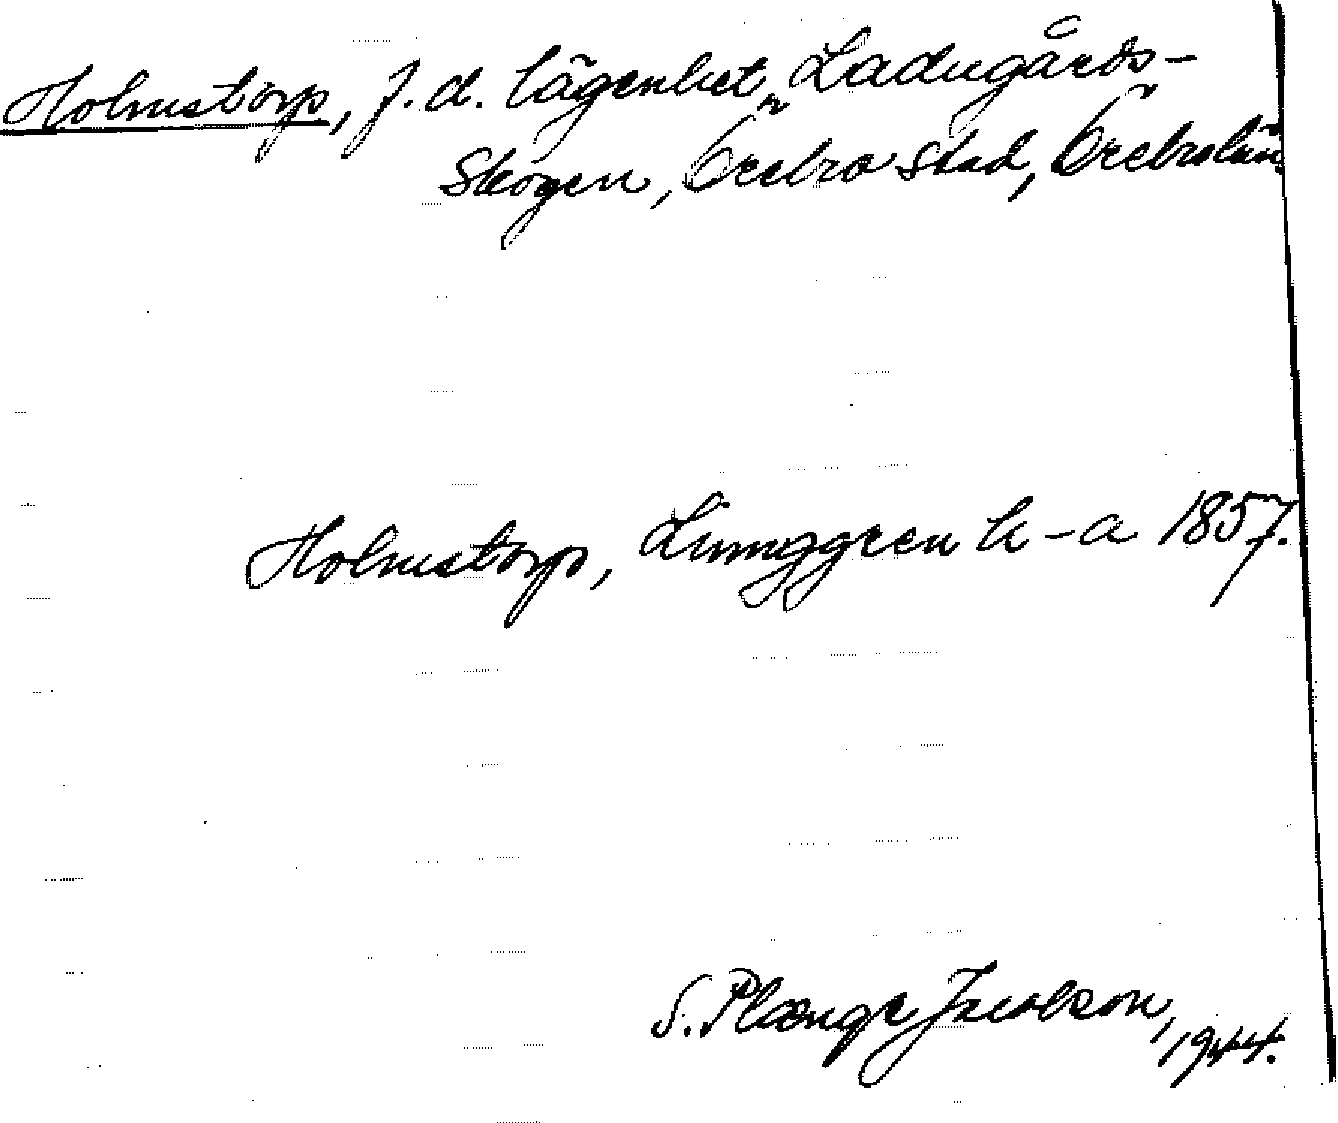 Holmstorp, f.d. lägenhet, Ladugårds-
skogen, Örebro stad, Örebro län
Holmstorp, Ljunggren h-a 1857.
S. Plænge Jacobson,
1944.